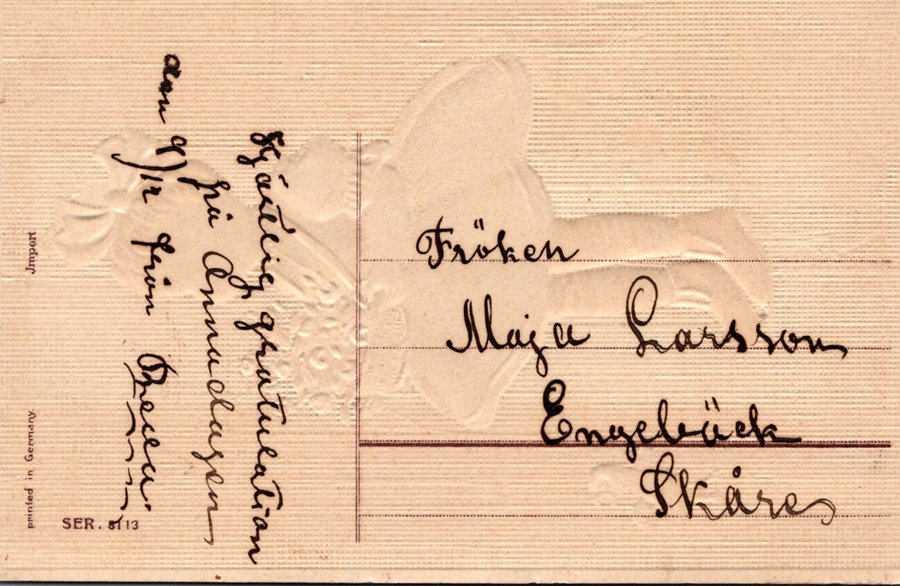 Hjärtlig gratulation
på Annadagen
den 9/12 från
Fröken
Maja Larsson
Engebäck
Skåre
Jmport
printed in Germany.
SER. 8113